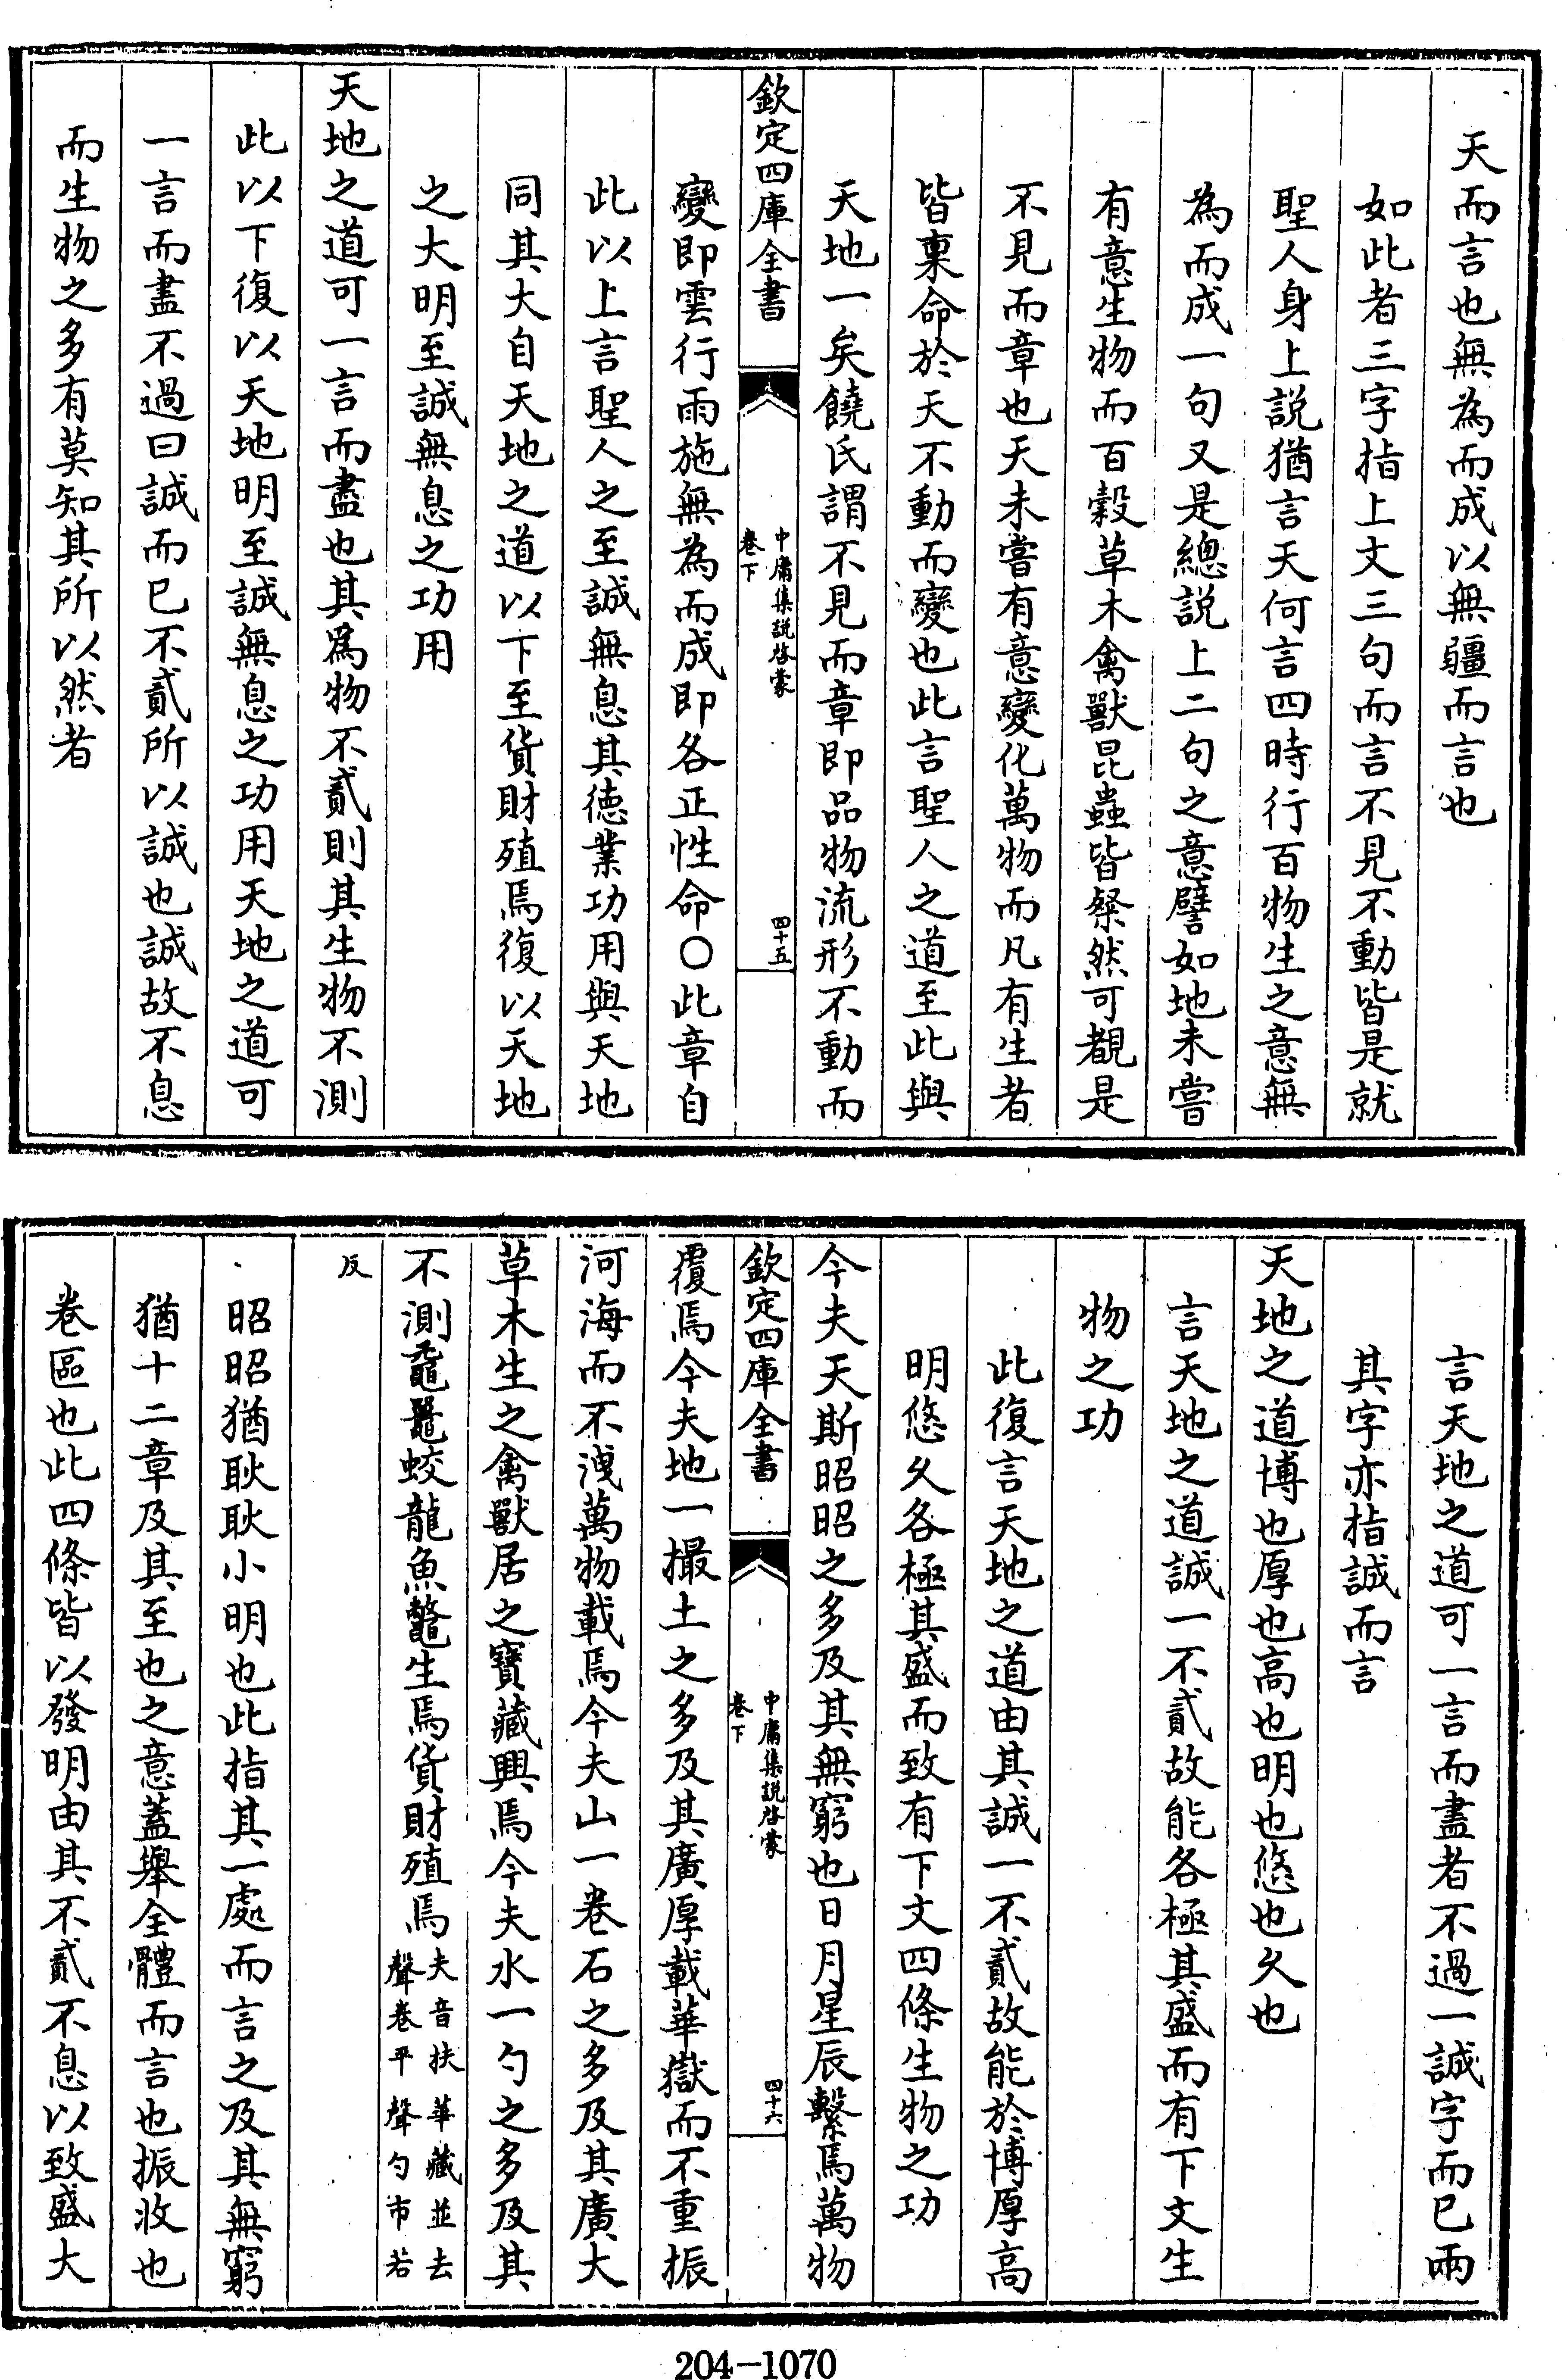 天而言也無為而成以無疆而言也
如此者三字指上文三句而言不見不動皆是就
聖人身上説猶言天何言四時行百物生之意無
為而成一句又是總説上二句之意譬如地未嘗
有意生物而百穀草木禽獸昆蟲皆粲然可覩是
不見而章也天未嘗有意變化萬物而凡有生者
皆稟命於天不動而變也此言聖人之道至此與
天地一矣饒氏謂不見而章即品物流形不動而
欽定四庫全書
中庸集説啓蒙
卷下
四十五
變即雲行雨施無為而成即各正性命○此章自
此以上言聖人之至誠無息其徳業功用與天地
同其大自天地之道以下至貨財殖焉復以天地
之大明至誠無息之功用
天地之道可一言而盡也其為物不貳則其生物不測
此以下復以天地明至誠無息之功用天地之道可
一言而盡不過曰誠而已不貳所以誠也誠故不息
而生物之多有莫知其所以然者
言天地之道可一言而盡者不過一誠字而已兩
其字亦指誠而言
天地之道博也厚也高也明也悠也久也
言天地之道誠一不貳故能各極其盛而有下文生
物之功
此復言天地之道由其誠一不貳故能於博厚高
明悠久各極其盛而致有下文四條生物之功
今夫天斯昭昭之多及其無窮也日月星辰繫焉萬物
欽定四庫全書
中庸集説啓蒙
卷下
四十六
覆焉今夫地一撮土之多及其廣厚載華嶽而不重振
河海而不洩萬物載焉今夫山一卷石之多及其廣大
草木生之禽獸居之寶藏興焉今夫水一勺之多及其
不測黿鼉蛟龍魚鼈生焉貨財殖焉夫音扶華藏並去
聲卷平聲勺市若
反
昭昭猶耿耿小明也此指其一處而言之及其無窮
猶十二章及其至也之意蓋舉全體而言也振收也
卷區也此四條皆以發明由其不貳不息以致盛大
204-1070